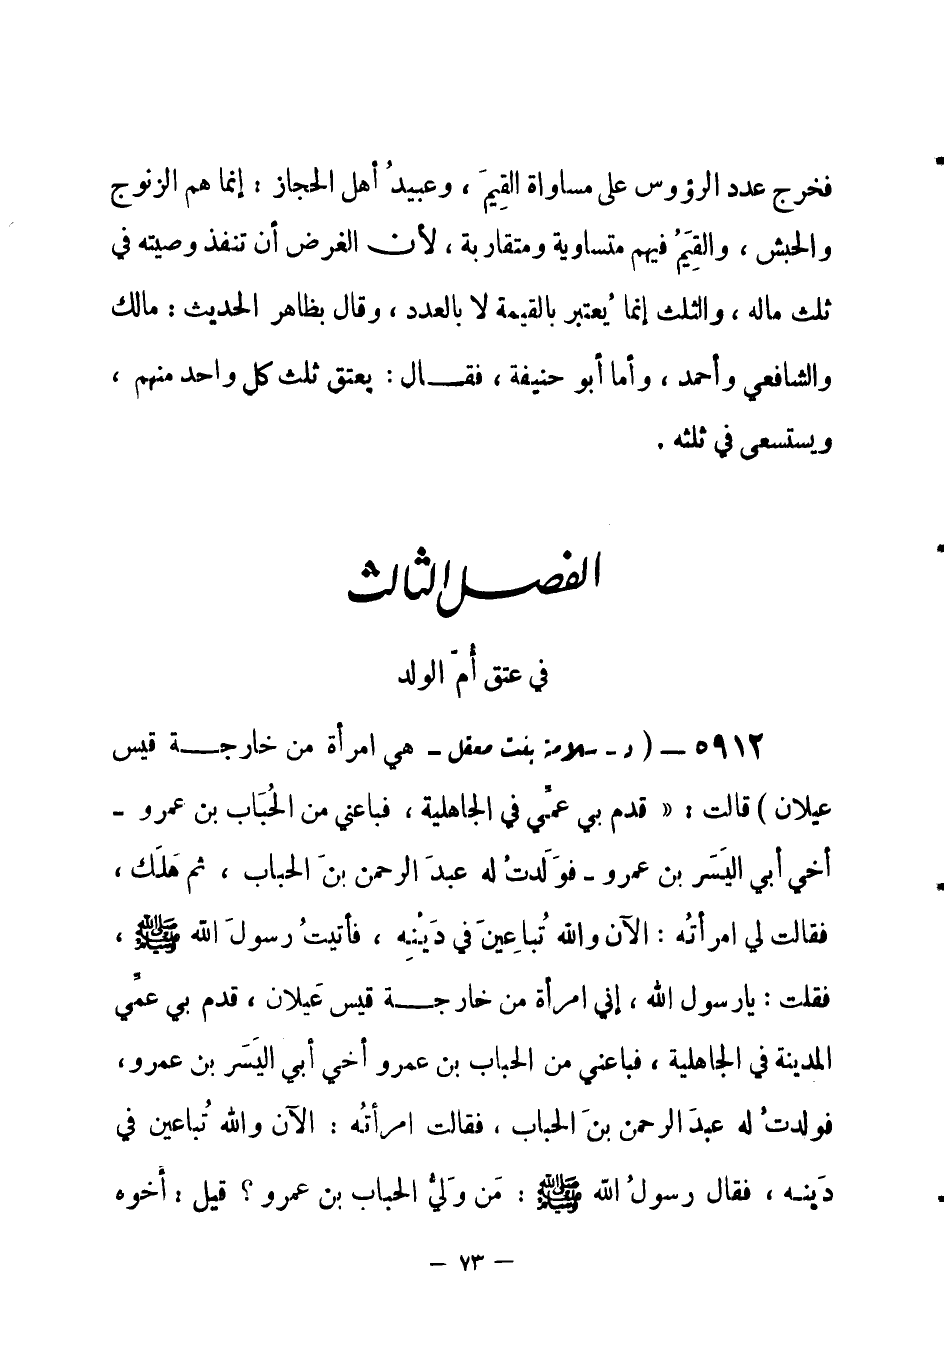 فخرج عدد الرؤوس على مساواة القِيَمَ ، وعبيدُ أهل الحجاز : إنما هم الزنوج
والحبش ، والقِيَمُ فيهم متساوية ومتقاربة ، لأن الغرض أن تنفذ وصيته في
ثلث ماله ، والثلث إنما يُعتبر بالقيمة لا بالعدد ، وقال بظاهر الحديث : مالك
والشافعي وأحمد ، وأما أبو حنيفة ، فقال : يعتق ثلث كل واحد منهم ،
ويستسعى في ثلثه .
الفصل الثالث
في عتق أُمّ الولد
٥٩١٢ – ( د - سلامة بنت معقل - هي امرأة من خارجة قيس
عيلان ) قالت : « قدم بي عمِّي في الجاهلية ، فباعني من الحُبَاب بن عمرو -
أخي أبي اليَسَر بن عمرو - فوَلَدتُ له عبدَ الرحمن بنَ الحباب ، ثم هَلَك ،
فقالت لي امرأتُه : الآن والله تُباعِينَ في دَيْنِه ، فأتيتُ رسولَ الله ﷺ ،
فقلت : يارسول الله ، إني امرأة من خارجة قيس عَيلان ، قدم بي عمِّي
المدينة في الجاهلية ، فباعني من الحباب بن عمرو أخي أبي اليَسَر بن عمرو،
فولدتُ له عبدَ الرحمن بنَ الحباب ، فقالت امرأتُه : الآن والله تُباعين في
دَينه ، فقال رسولُ الله ﷺ : مَن وَليُّ الحباب بن عمرو ؟ قيل : أخوه
– ٧٣ –